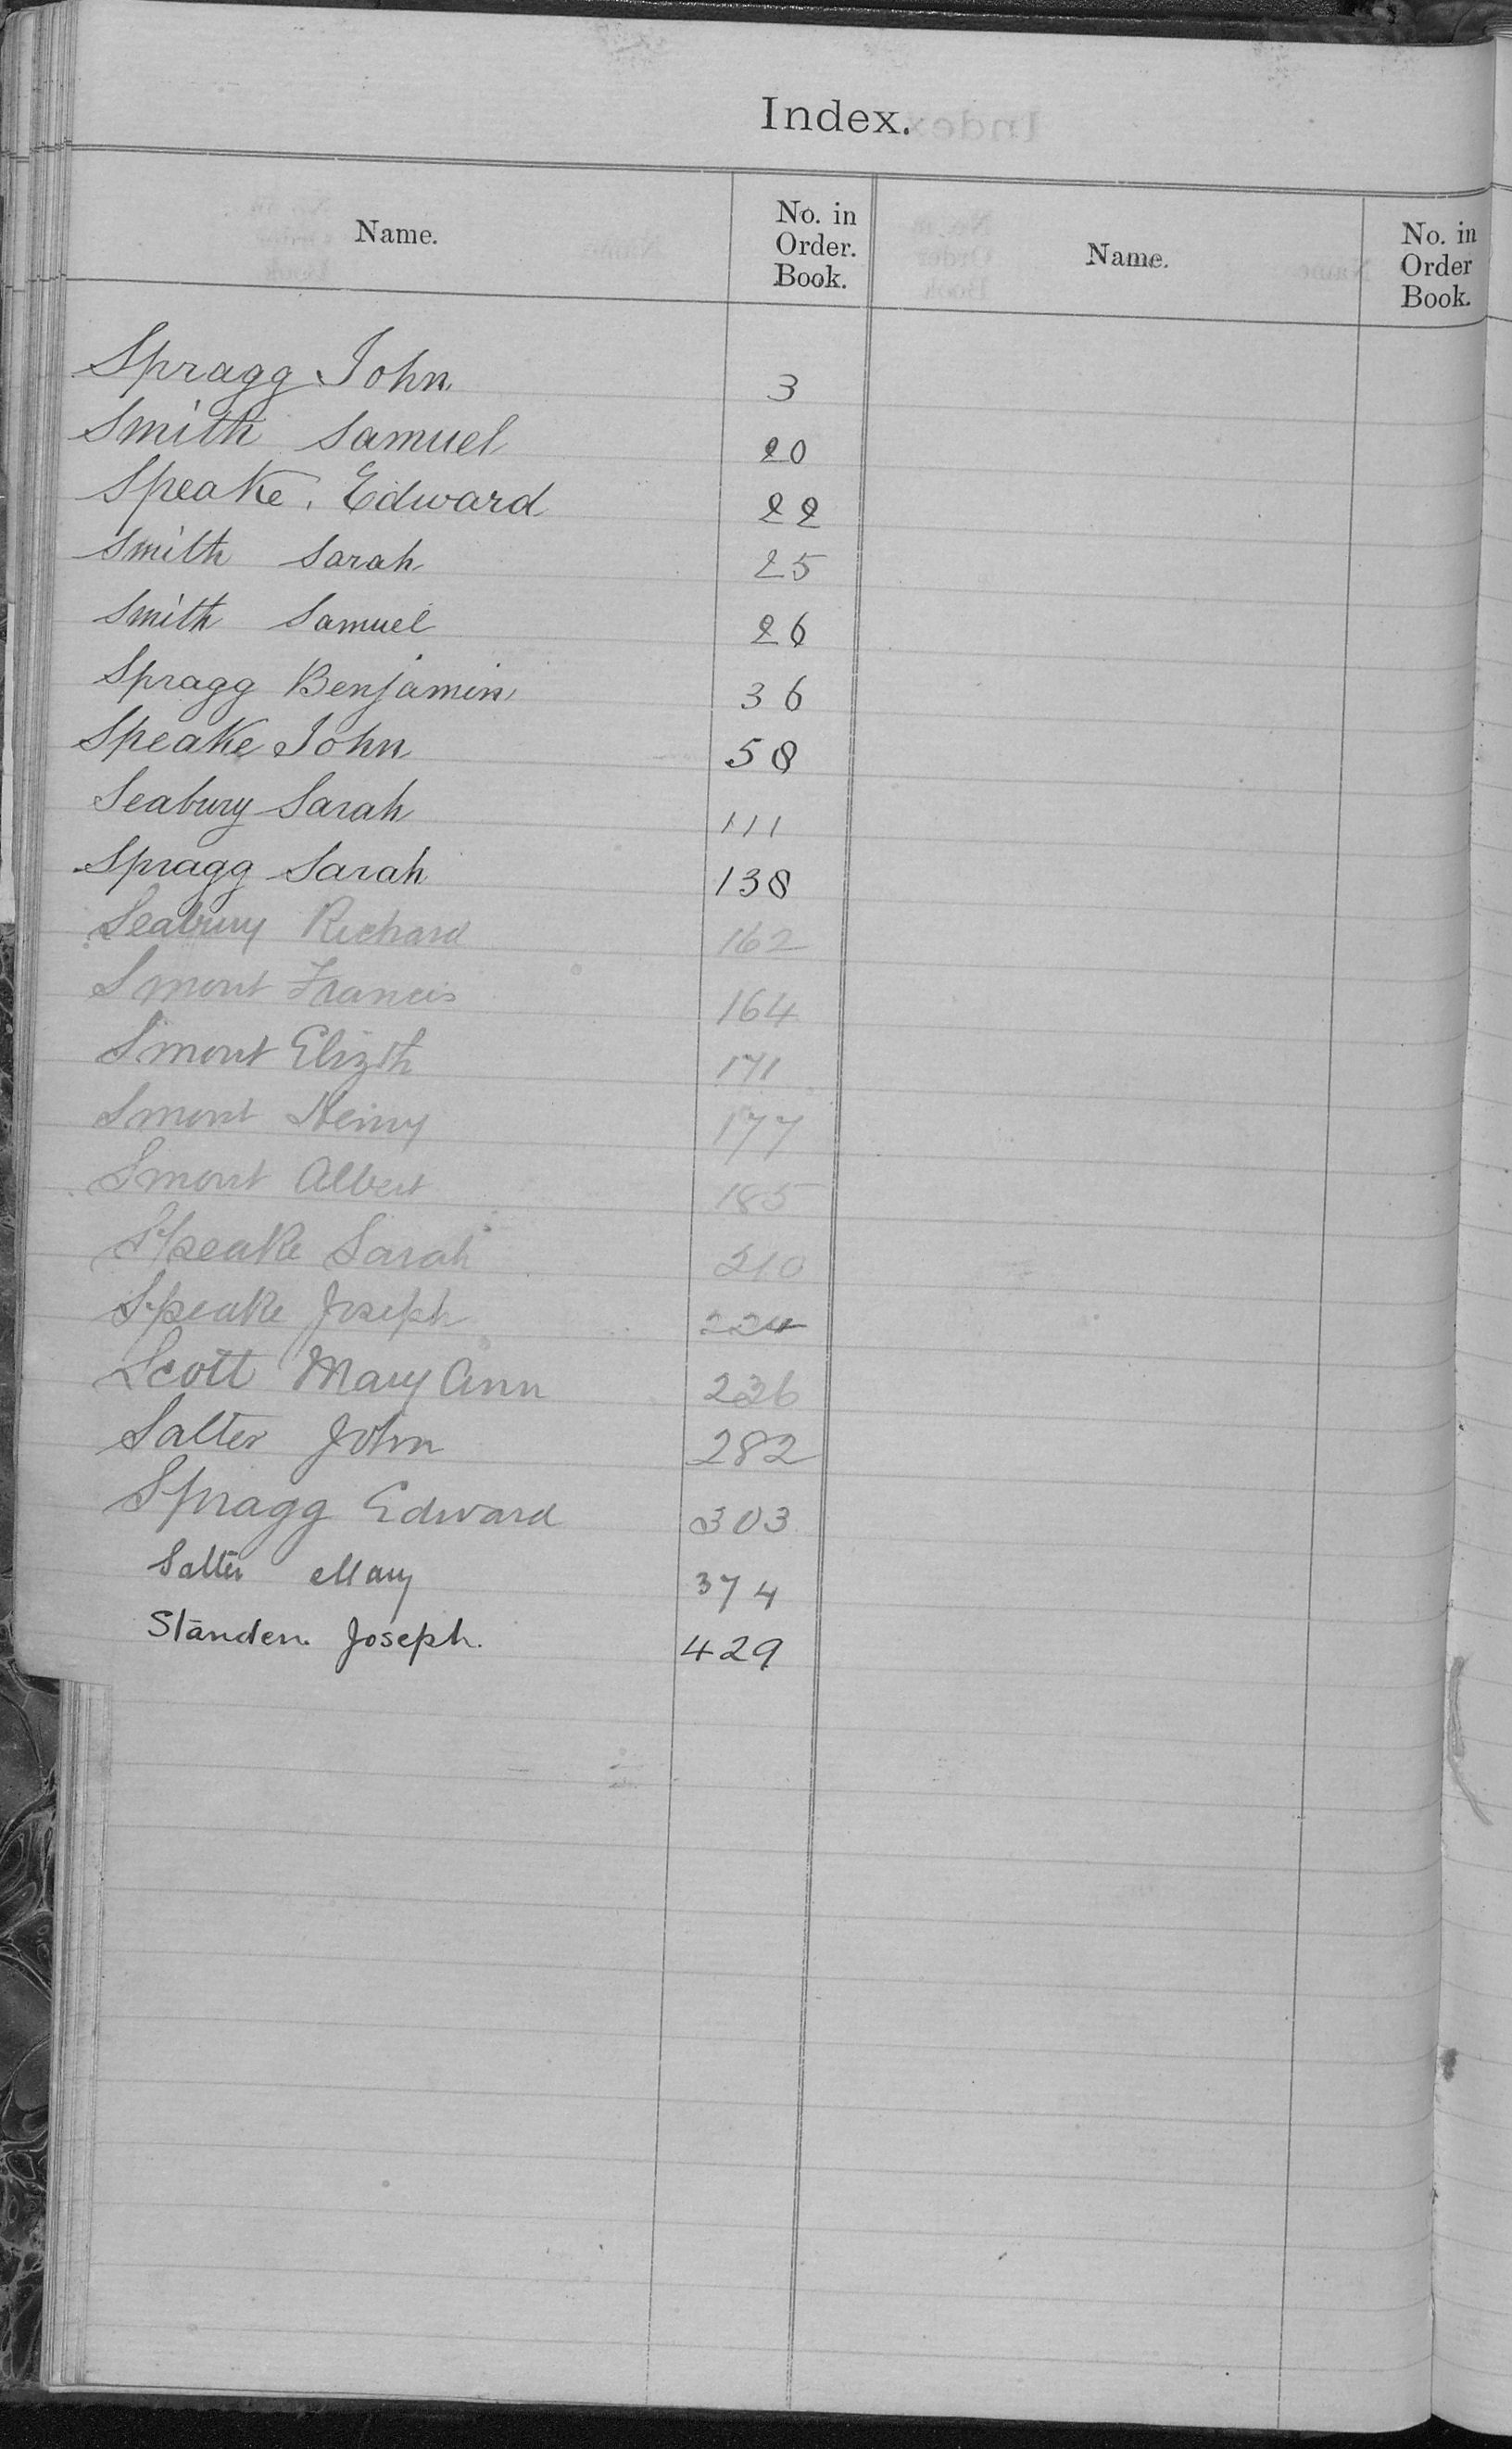 Index.
Name. No. in Order. Book. Name. No. in Order Book.
Spragg John 3
Smith Samuel 20
Speake, Edward 22
Smith Sarah 25
Smith Samuel 26
Spragg Benjamin 36
Speake John 58
Seabury Sarah 111
Spragg Sarah 138
Seabury Richard 162
Smout Francis 164
Smout Elizth 171
Smout Henry 177
Smout Albert 185
Speake Sarah 210
Speake Joseph 224
Scott Mary Ann 236
Salter John 282
Spragg Edward 303
Salter Mary 374
Standen. Joseph. 429